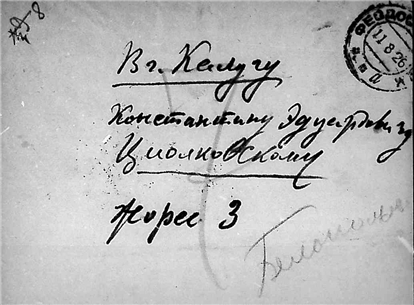 ФЕОДОС
11 8 26
В г. Калугу
Константину Эдуардовичу
Циолковскому
Жорес 3